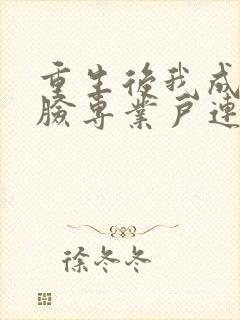 重生後我成
臉專業戶連
徐冬冬